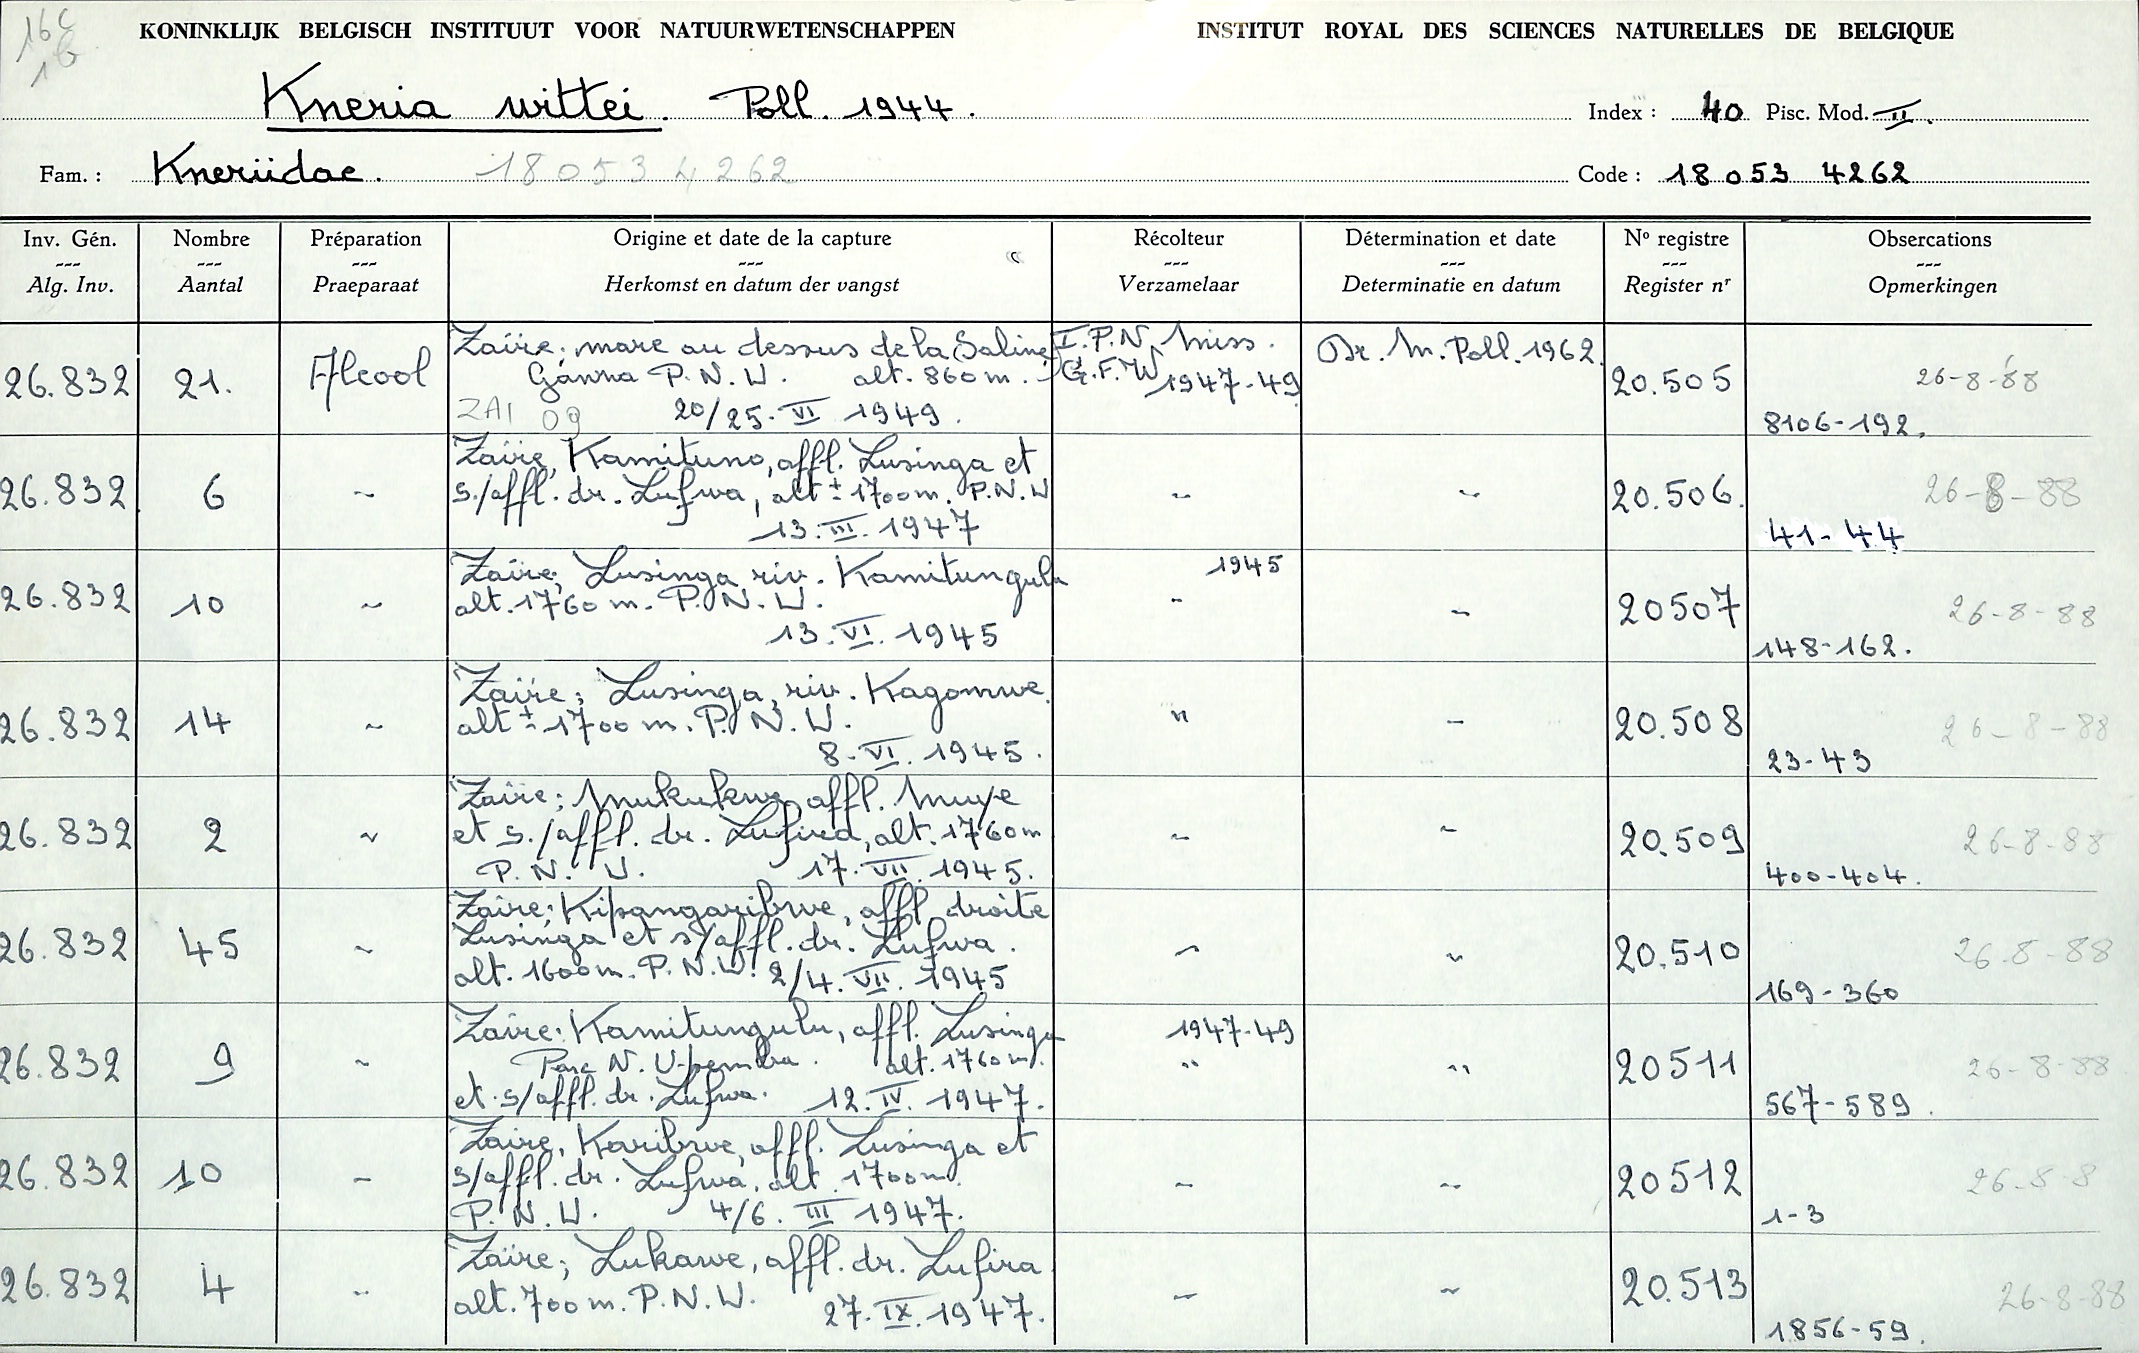 16c
1b
KONINKLIJK BELGISCH INSTITUUT VOOR NATUURWETENSCHAPPEN INSTITUT ROYAL DES SCIENCES NATURELLES DE BELGIQUE
Kneria wittei. Poll. 1944. Index : 40 Pisc. Mod. II.
Fam. : Kneriidae. 18053 4262 Code : 18053 4262
Inv. Gén. Nombre Préparation Origine et date de la capture Récolteur Détermination et date Nº registre Obsercations
--- --- --- --- --- --- --- ---
Alg. Inv. Aantal Praeparaat Herkomst en datum der vangst Verzamelaar Determinatie en datum Register nr Opmerkingen
Zaïre; mare au dessus de la Saline I.P.N. Miss. Dr. M. Poll. 1962.
26.832 21. Alcool Ganna P.N.U. alt. 860m. G.F.W 1947-49 20.505 26-8-88
ZAI 09 20/25. VI 1949. 8106-192.
Zaïre, Kamituno, affl. Lusinga et
26.832 6 ~ s./affl. dr. Lufwa, alt ± 1700m. P.N.U ~ ~ 20.506. 26-8-88
13. III. 1947 41-44
Zaïre; Lusinga riv. Kamitungulu 1945
26.832 10 ~ alt. 1760 m. P.N.U. - ~ 20507 26-8-88
13. VI. 1945 148-162.
Zaïre; Lusinga, riv. Kagomwe.
26.832 14 ~ alt ± 1700 m. P.N.U. " - 20.508 26-8-88
8. VI. 1945. 23-43
Zaïre; Mukukwe affl. Muye
26.832 2 ~ et s./affl. dr. Lufira, alt. 1760m ~ ~ 20.509 26-8-88
P.N.U. 17. VII. 1945. 400-404.
Zaïre; Kipangaribwe, affl droite
26.832 45 ~ Lusinga et s/affl. dr. Lufwa. ~ ~ 20.510 26.8-88
alt. 1600m. P.N.U. 2/4. VII. 1945 169-360
Zaïre: Kamitungulu, affl. Lusinga 1947-49
26.832 9 ~ Parc N. Upemba. alt. 1760m. " " 20511 26-8-88
et s/affl. dr. Lufwa. 12. IV. 1947. 567-589.
Zaïre, Karibwe, affl. Lusinga et
26.832 10 - s/affl. dr. Lufwa, alt 1700m. - ~ 20512 26-8 8
P.N.U. 4/6. III 1947. 1-3
Zaïre; Lukawe, affl. dr. Lufira
26.832 4 ~ alt. 700m. P.N.U. ~ ~ 20.513 26-8-88
27. IX. 1947. 1856-59.